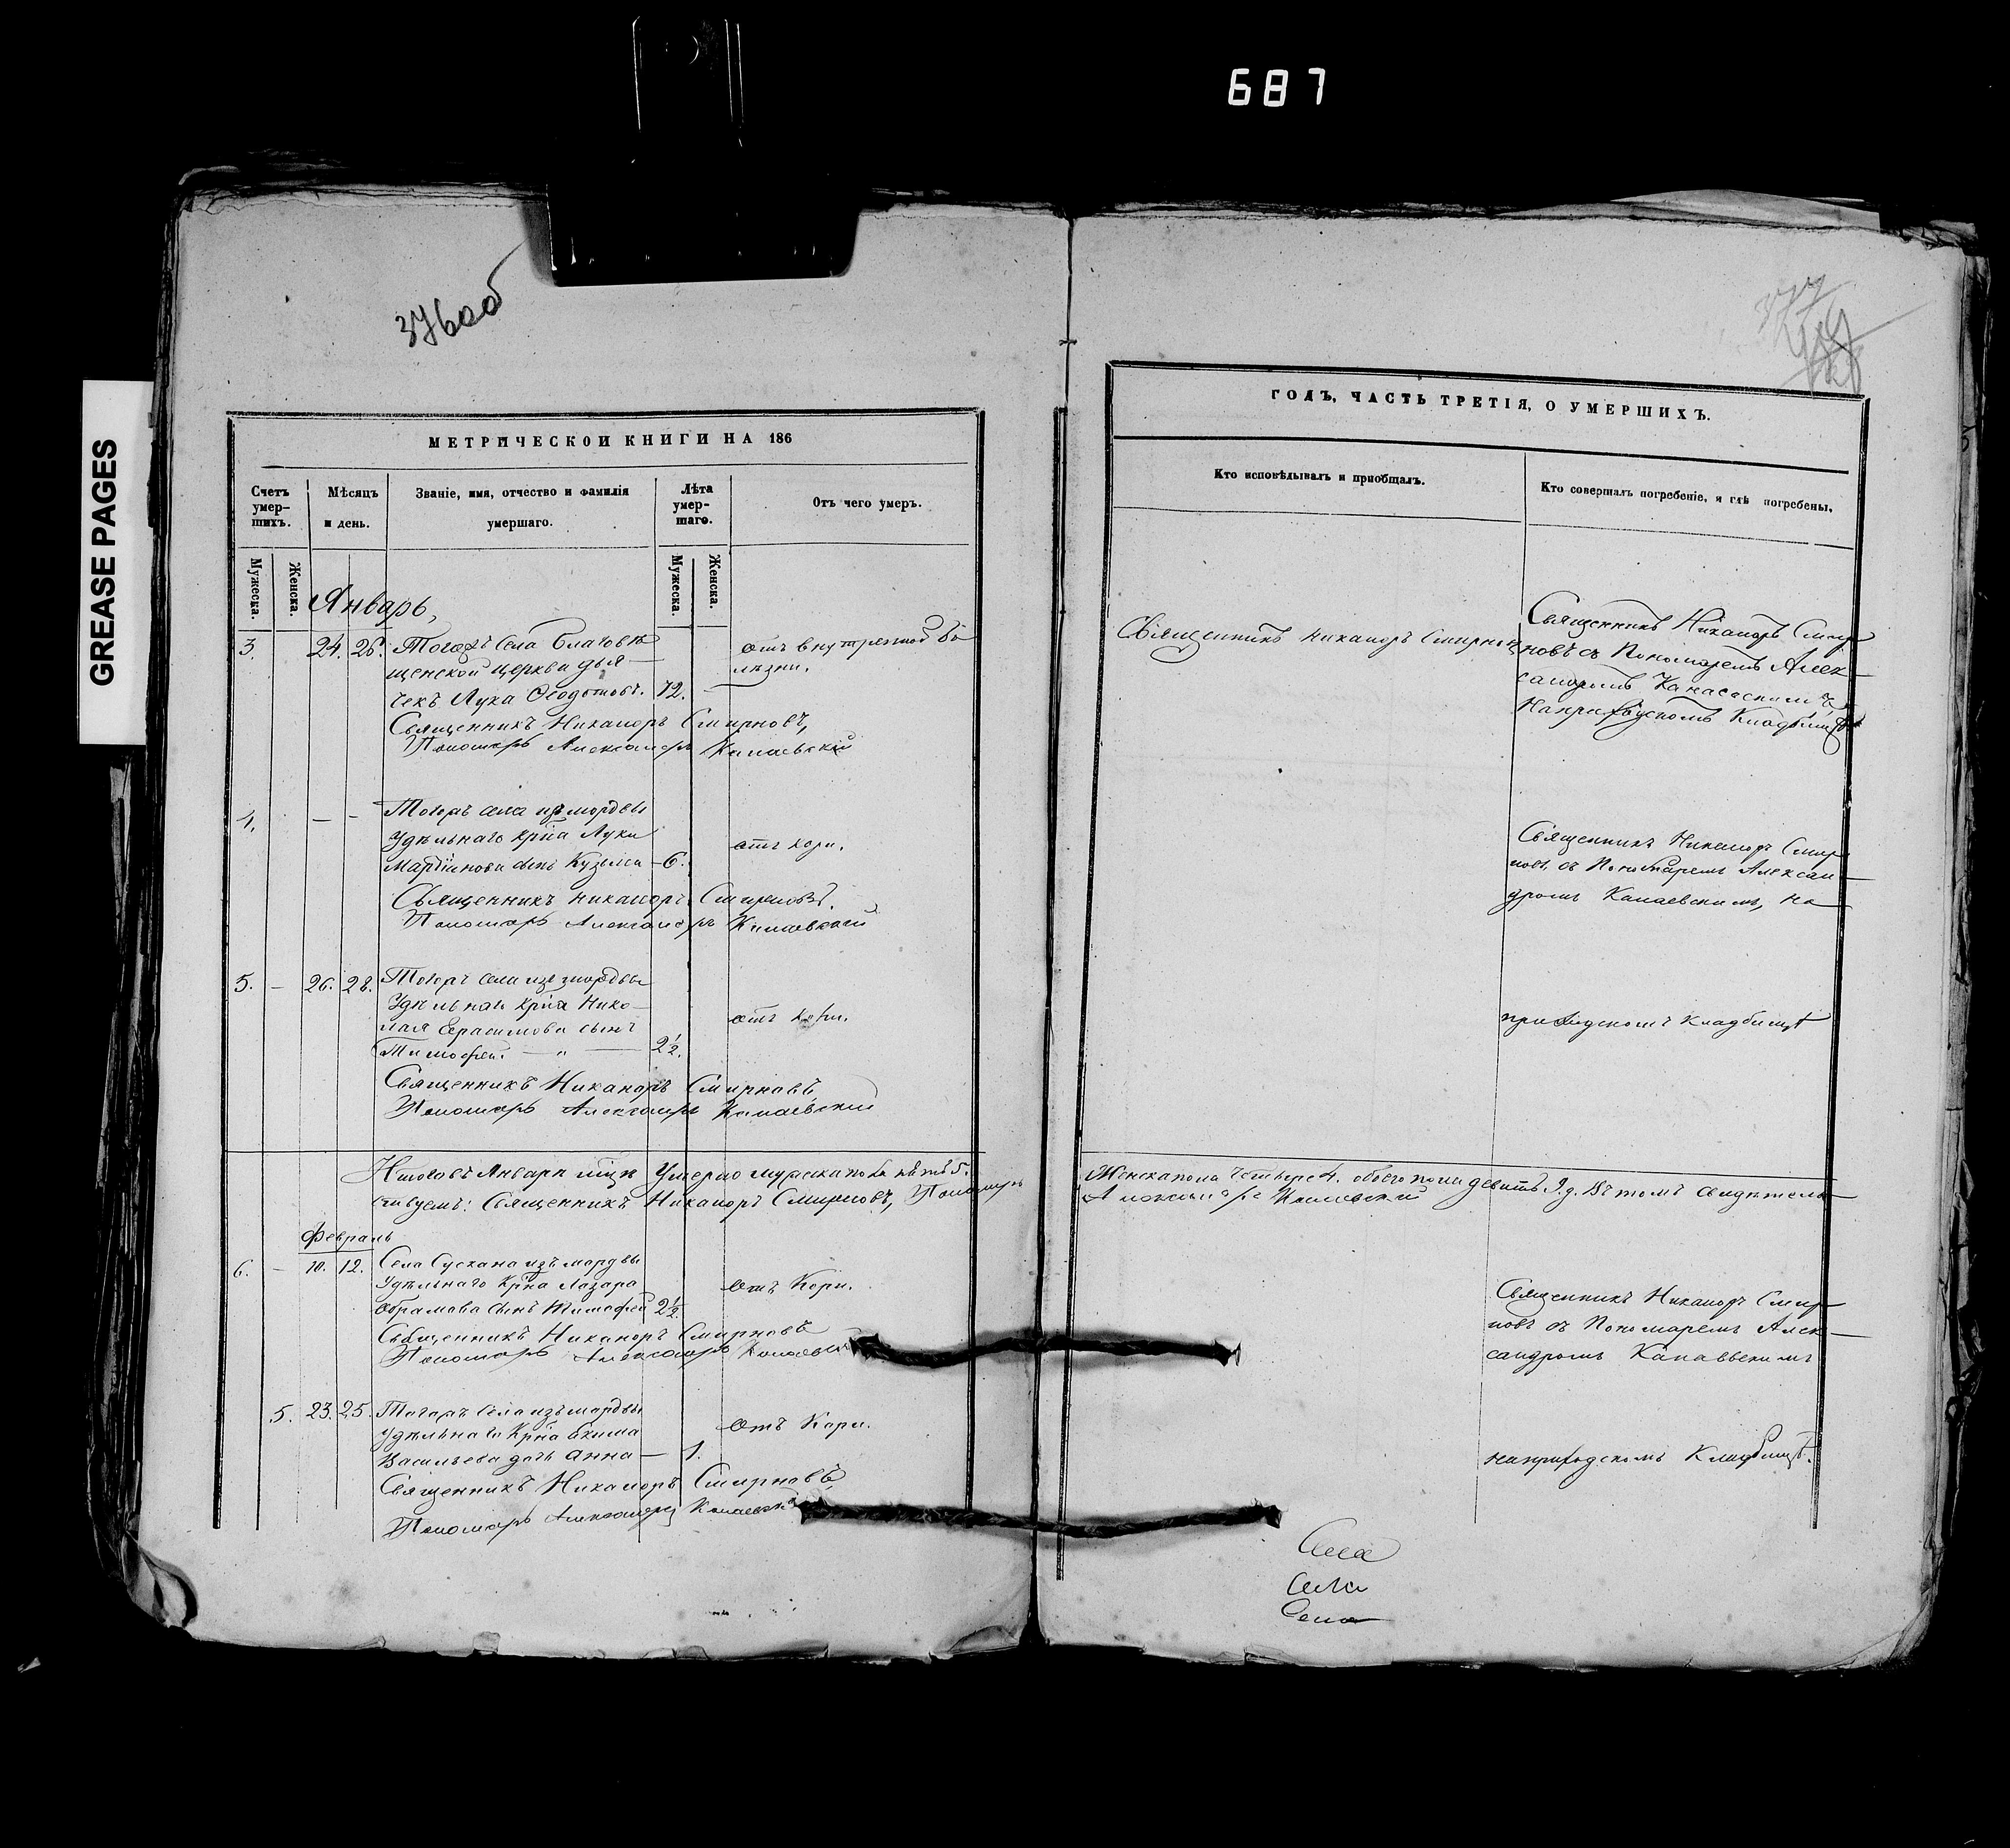 687
GREASE PAGES
376об
377
МЕТРИЧЕСКОЙ КНИГИ НА 186
Счетъ умер-шихъ.
Мѣсяцъ и день.
Званіе, имя, отчество и фамилія умершаго.
Лѣта умер-шаго.
Отъ чего умеръ.
Мужеска.
Женска.
Мужеска.
Женска.
Январь,
3. 24. 26. Тогожъ села Благовѣ
щенской церкви дья-
чекъ Лука Ѳедотовъ. 72.
отъ внутренной бо
лѣзни.
Священникъ Никаноръ Смирновъ,
Пономарь Александръ Канаевскій
4. — — Тогожъ села изъ мордвы
Удѣльнаго крна Луки
Мартинова сынъ Кузьма — 6.
отъ кори.
Священникъ Никаноръ Смирновъ.
Пономарь Александръ Канаевскій
5. — 26. 28. Тогожъ села изъ мордвы
Удѣльнаго крна Нико-
лая Герасимова сынъ
Тимофей. — „ — 2½.
отъ кори.
Священникъ Никаноръ Смирновъ,
Пономарь Александръ Канаевскій
Итого въ Январѣ мцѣ Умерло мужеска пола пять 5.
ствуемъ: Священникъ Никаноръ Смирновъ, Пономарь
Февраль
6. — 10. 12. Села Сускана изъ мордвы
Удѣльнаго Крна Лазаря
Абрамова сынъ Тимофей 2½.
Отъ Кори.
Священникъ Никаноръ Смирновъ
Пономарь Александръ Канаевскій
5. 23. 25. Тогожъ села изъ мордвы
Удѣльнаго Крна Екима
Васильева дочь Анна — 1.
Отъ Кори.
Священникъ Никаноръ Смирновъ,
Пономарь Александръ Канаевскій
ГОДЪ, ЧАСТЬ ТРЕТІЯ, О УМЕРШИХЪ.
Кто исповѣдывалъ и пріобщалъ.
Кто совершалъ погребеніе, и гдѣ погребены,
Священникъ Никаноръ Смирновъ
Священникъ Никаноръ Смир
новъ съ Пономаремъ Алек-
сандромъ Канаевскимъ,
На приходскомъ Кладбищѣ
Священникъ Никаноръ Смир
новъ, съ Пономаремъ Алексан-
дромъ Канаевскимъ, на
приходскомъ кладбищѣ
Женска пола четыре 4. обоего пола девять 9. д. Въ томъ свидѣтель-
Александръ Канаевскій
Священникъ Никаноръ Смир-
новъ съ Пономаремъ Алек-
сандромъ Канаевскимъ
на приходскомъ Кладбищѣ.
Села
Села
Села